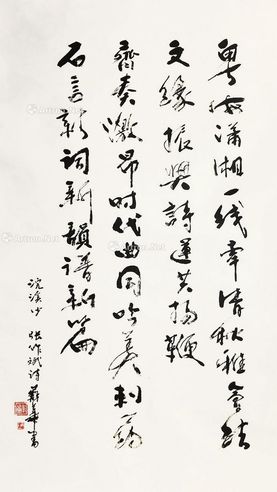 粤海潇湘一线牵清秋雅会结
文缘振兴诗运共扬鞭
齐奏激昂时代曲同吟美刺
石言新词新韵谱新篇
浣溪沙 张作斌诗 书